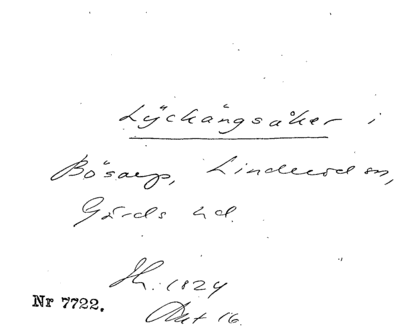 Lÿckängsåker i
Bösarp, Linderöd sn,
Gärds hd.
Sk. 1824
Akt 16.
Nr 7722.